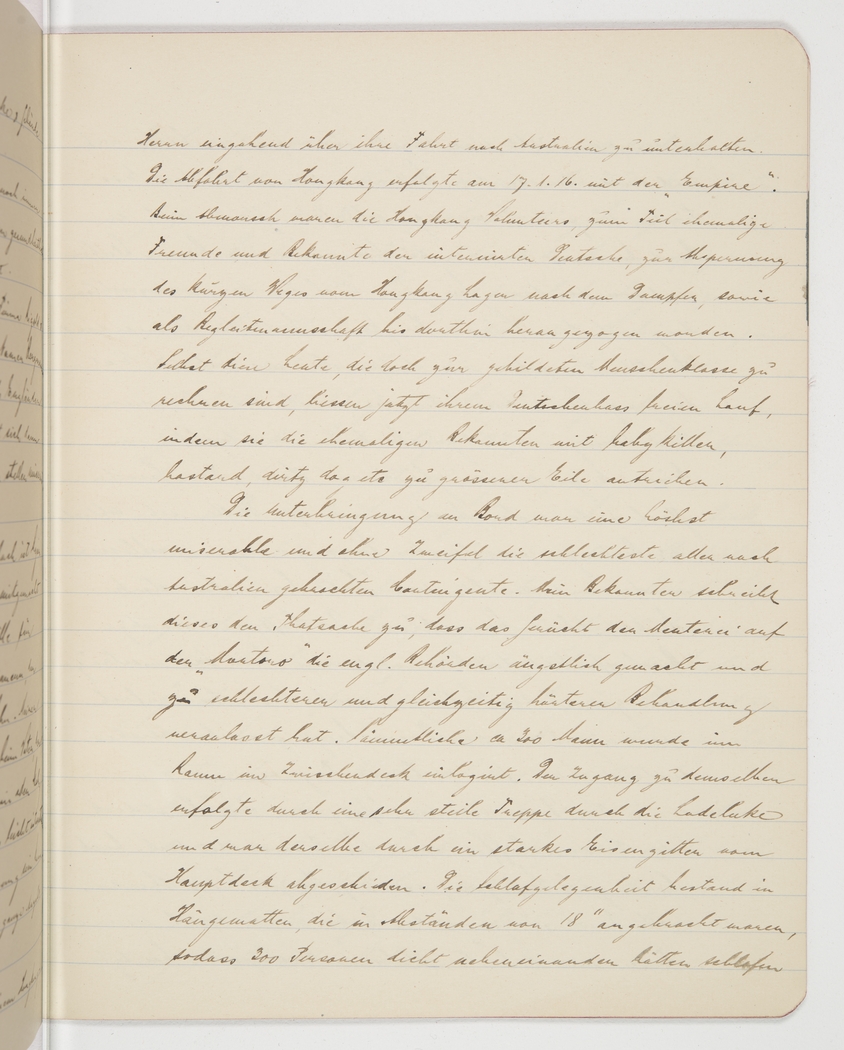 Herrn eingehend über ihre Fahrt nach Australien zu unterhalten.
Die Abfahrt von Hongkong erfolgte am 17.1.16. mit der "Empire".
Beim Abmarsch waren die Hongkong Volunteers, zum Teil ehemalige
Freunde und Bekannte der internierten Deutsche, zur Absperrung
des kurzen Weges vom Hongkong Lager nach dem Dampfer, sowie
als Begleitmannschaft bis dorthin herangezogen worden.
Selbst diese Leute, die doch zur gebildeten Menschenklasse zu
rechnen sind, liessen jetzt ihrem Deutschenhass freien Lauf,
indem sie die ehemaligen Bekannten mit babykiller,
bastard, dirty dog etc zu grösserer Eile antrieben.
Die Unterbringung an Bord war eine höchst
miserable und ohne Zweifel die schlechteste aller nach
Australien gebrachten Contingente. Mein Bekannter schreibt
dieses der Thatsache zu, dass das Gerücht der Meuterei auf
der "Montoro" die engl. Behörden ängstlich gemacht und
zu schlechterer und gleichzeitig härterer Behandlung
veranlasst hat. Sämmtliche ca 300 Mann wurde im
Raum im Zwischendeck einlogirt. Der Zugang zu demselben
erfolgte durch eine sehr steile Treppe durch die Ladeluke
und war derselbe durch ein starkes Eisengitter vom
Hauptdeck abgeschieden. Die Schlafgelegenheit bestand in
Hängematten, die in Abständen von 18" angebracht waren,
sodass 300 Personen dicht nebeneinander hätten schlafen